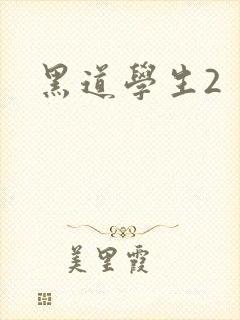 黑道學生2
美里霞